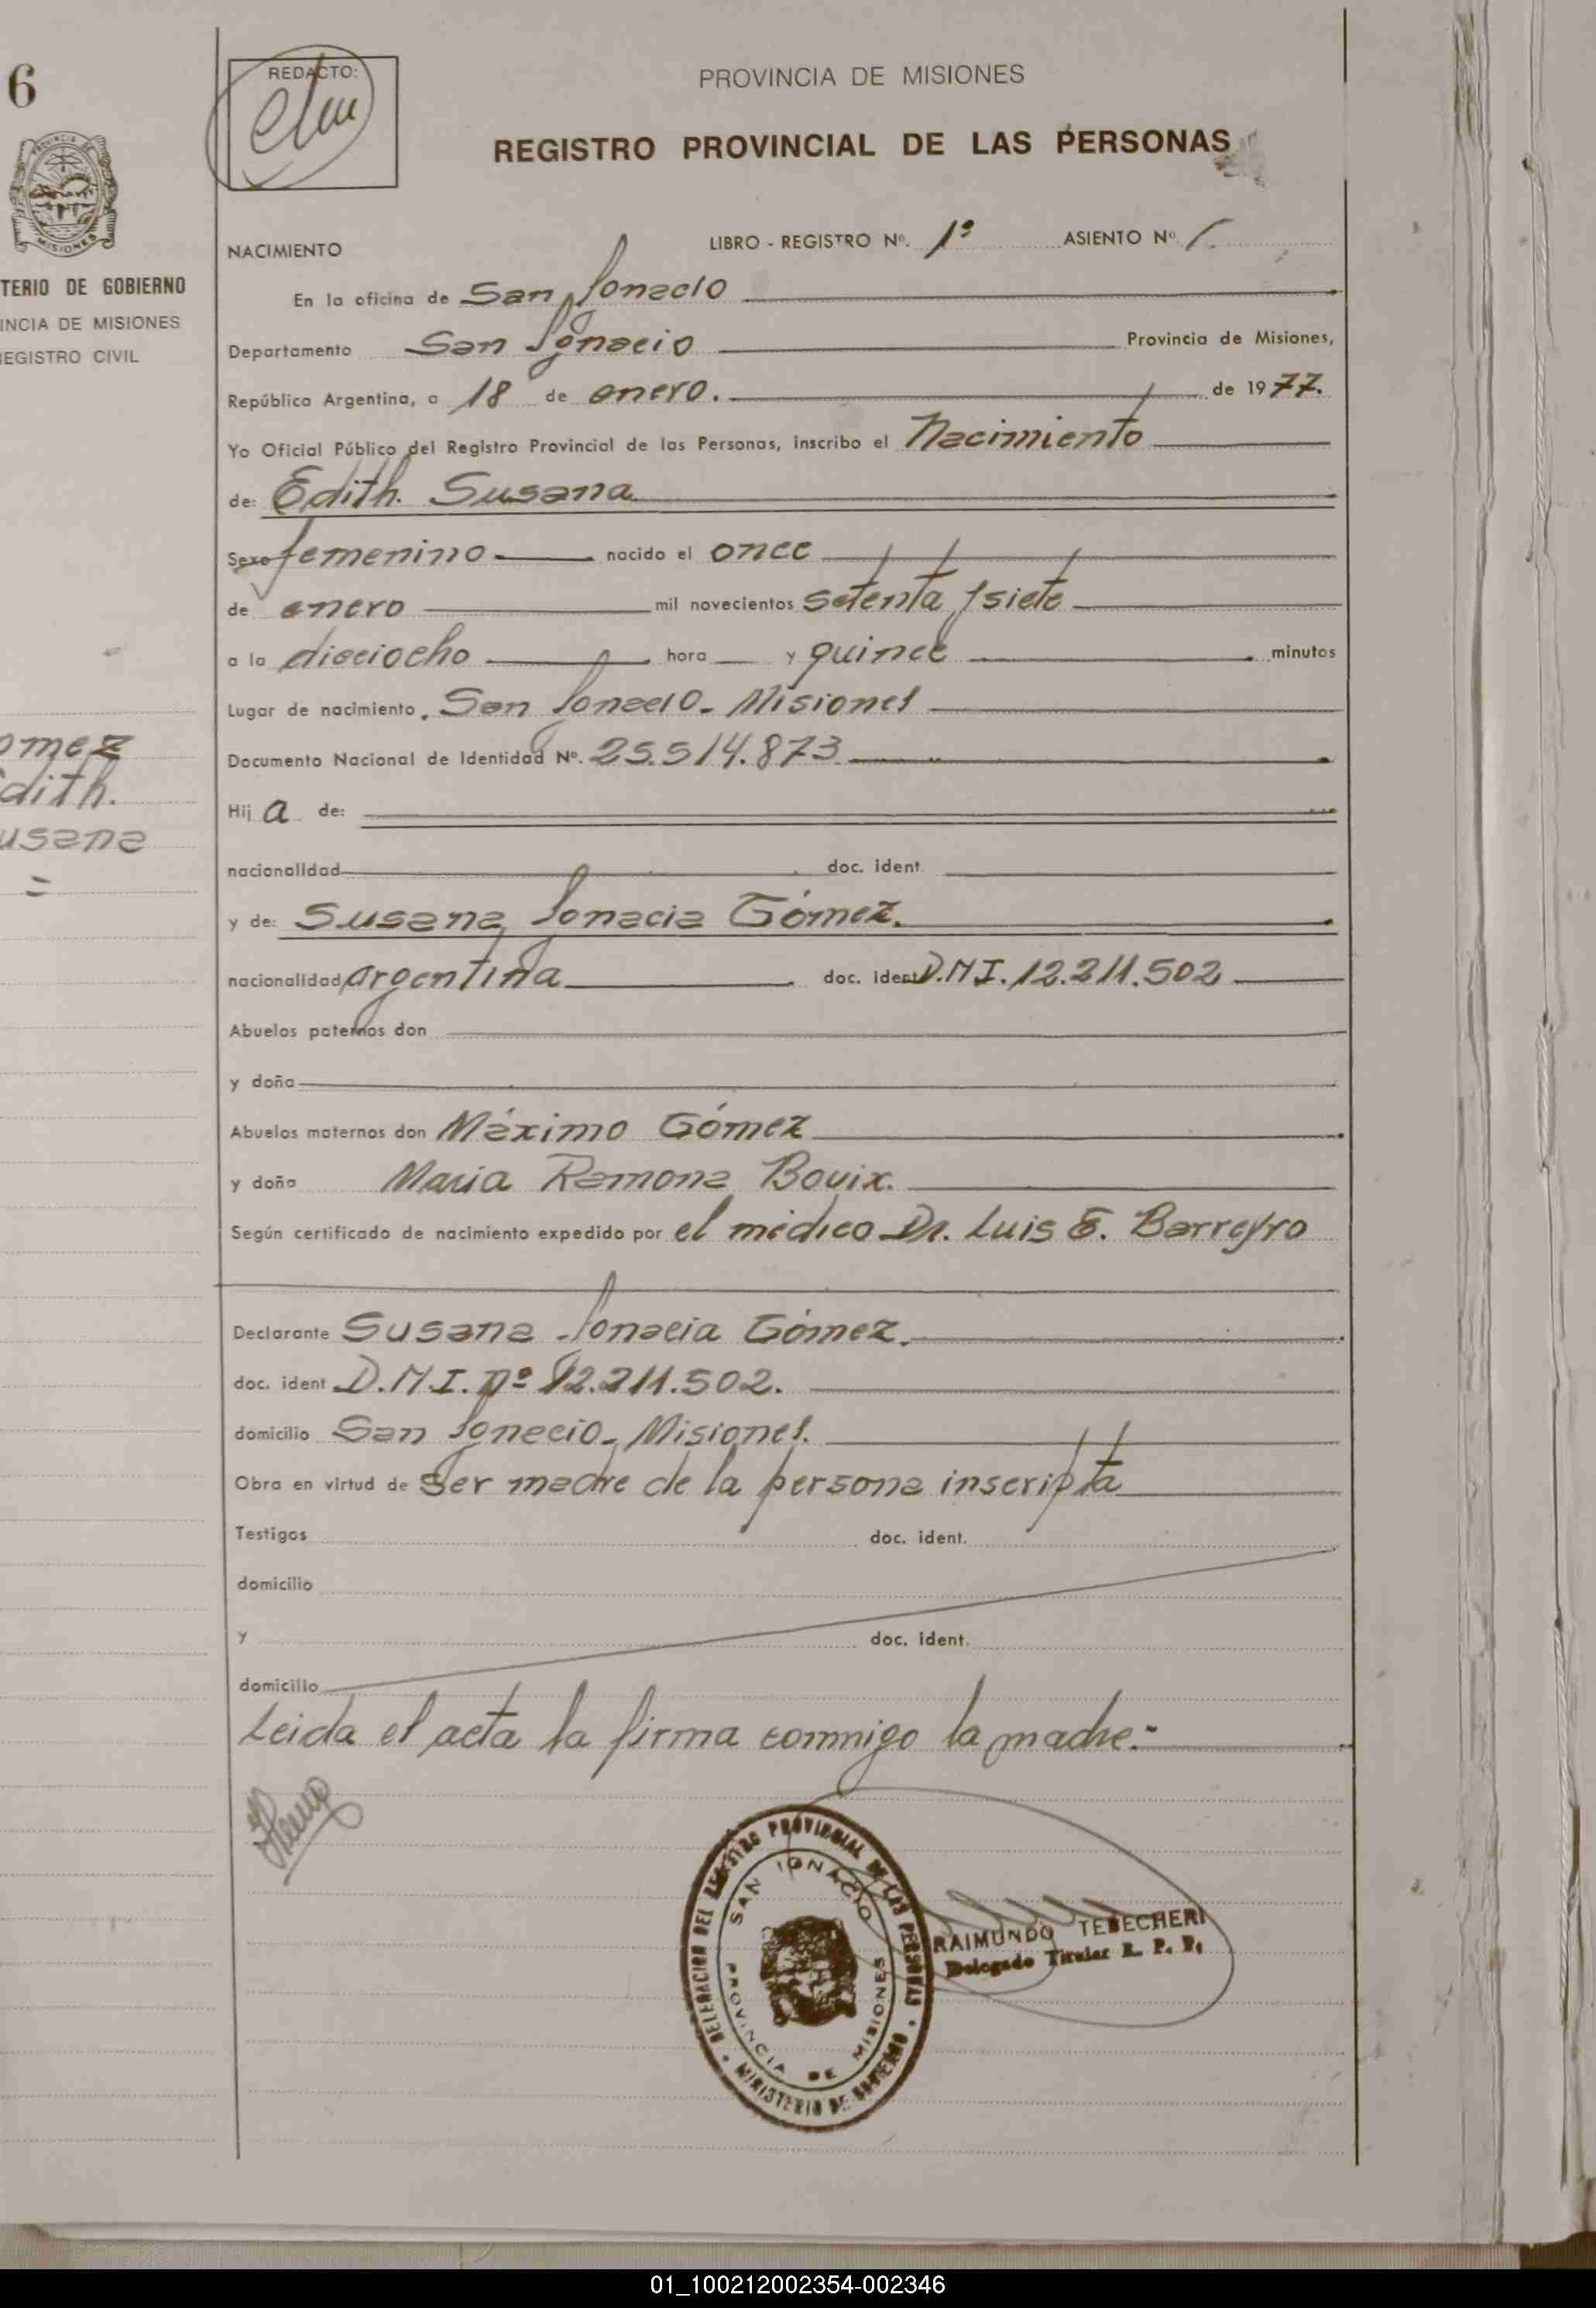 6
PROVINCIA DE
MISIONES
TERIO DE GOBIERNO
INCIA DE MISIONES
REGISTRO CIVIL
omez
Edith.
usana
=
REDACTO:
PROVINCIA DE MISIONES
REGISTRO PROVINCIAL DE LAS PERSONAS
NACIMIENTO LIBRO - REGISTRO Nº. 1º ASIENTO Nº 1.
En la oficina de San Ignacio
Departamento San Ignacio Provincia de Misiones,
República Argentina, a 18 de enero. de 1977.
Yo Oficial Público del Registro Provincial de las Personas, inscribo el Nacimiento
de: Edith. Susana
Sexo femenino nacido el once
de enero mil novecientos setenta y siete
a la dieciocho hora y quince minutos
Lugar de nacimiento. San Ignacio. Misiones
Documento Nacional de Identidad Nº. 25.514.873
Hij a de:
nacionalidad doc. ident
y de: Susana Ignacia Gómez.
nacionalidad argentina doc. ident D.N.I. 12.211.502
Abuelos paternos don
y doña
Abuelos maternos don Máximo Gómez
y doña Maria Ramona Bouix.
Según certificado de nacimiento expedido por el médico Dr. Luis E. Barreyro
Declarante Susana Ignacia Gómez.
doc. ident D.N.I. nº 12.211.502.
domicilio San Ignacio. Misiones.
Obra en virtud de ser madre de la persona inscripta
Testigos doc. ident.
domicilio
y doc. ident.
domicilio
Leida el acta la firma conmigo la madre:-
DELEGACION DEL REGISTRO PROVINCIAL DE LAS PERSONAS
SAN IGNACIO
PROVINCIA DE MISIONES
MINISTERIO DE GOBIERNO
RAIMUNDO TEBECHERI
Delegado Titular R. P. P.
01_100212002354-002346